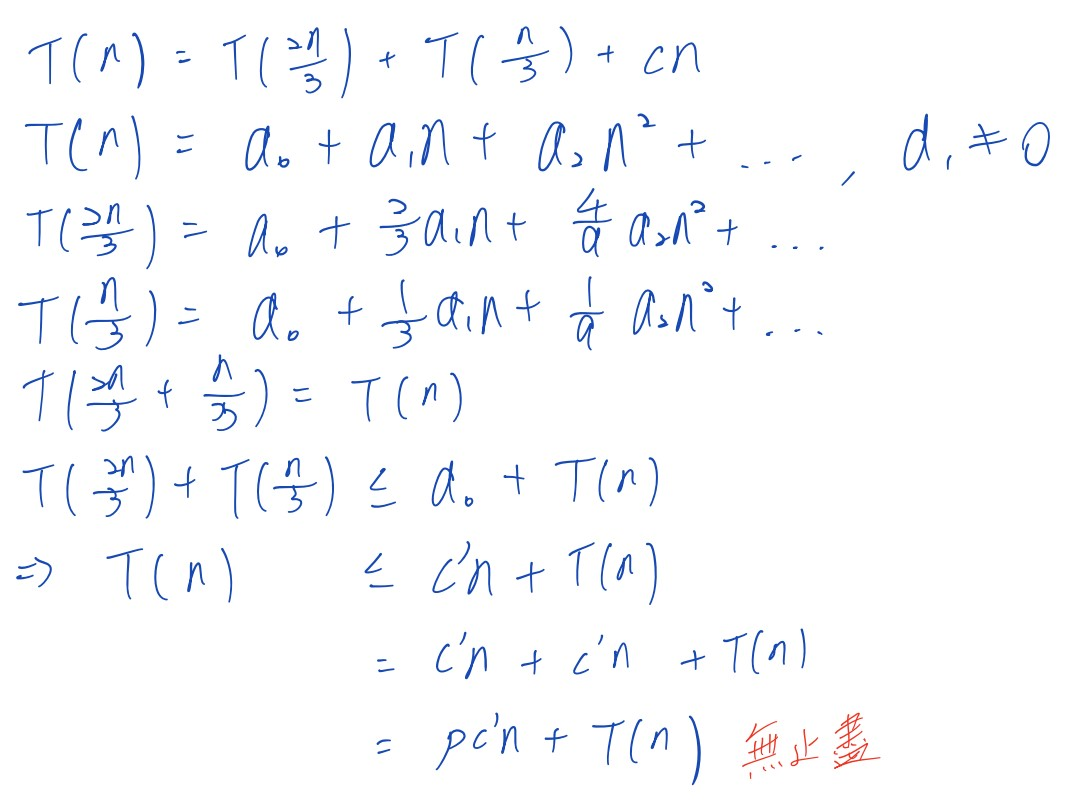 T(n) = T(2n/3) + T(n/3) + cn
T(n) = a₀ + a₁n + a₂n² + ... , a₁ ≠ 0
T(2n/3) = a₀ + 2/3 a₁n + 4/9 a₂n² + ...
T(n/3) = a₀ + 1/3 a₁n + 1/9 a₂n² + ...
T(2n/3 + n/3) = T(n)
T(2n/3) + T(n/3) ≤ a₀ + T(n)
⇒ T(n) ≤ c'n + T(n)
= c'n + c'n + T(n)
= pc'n + T(n) 無止盡